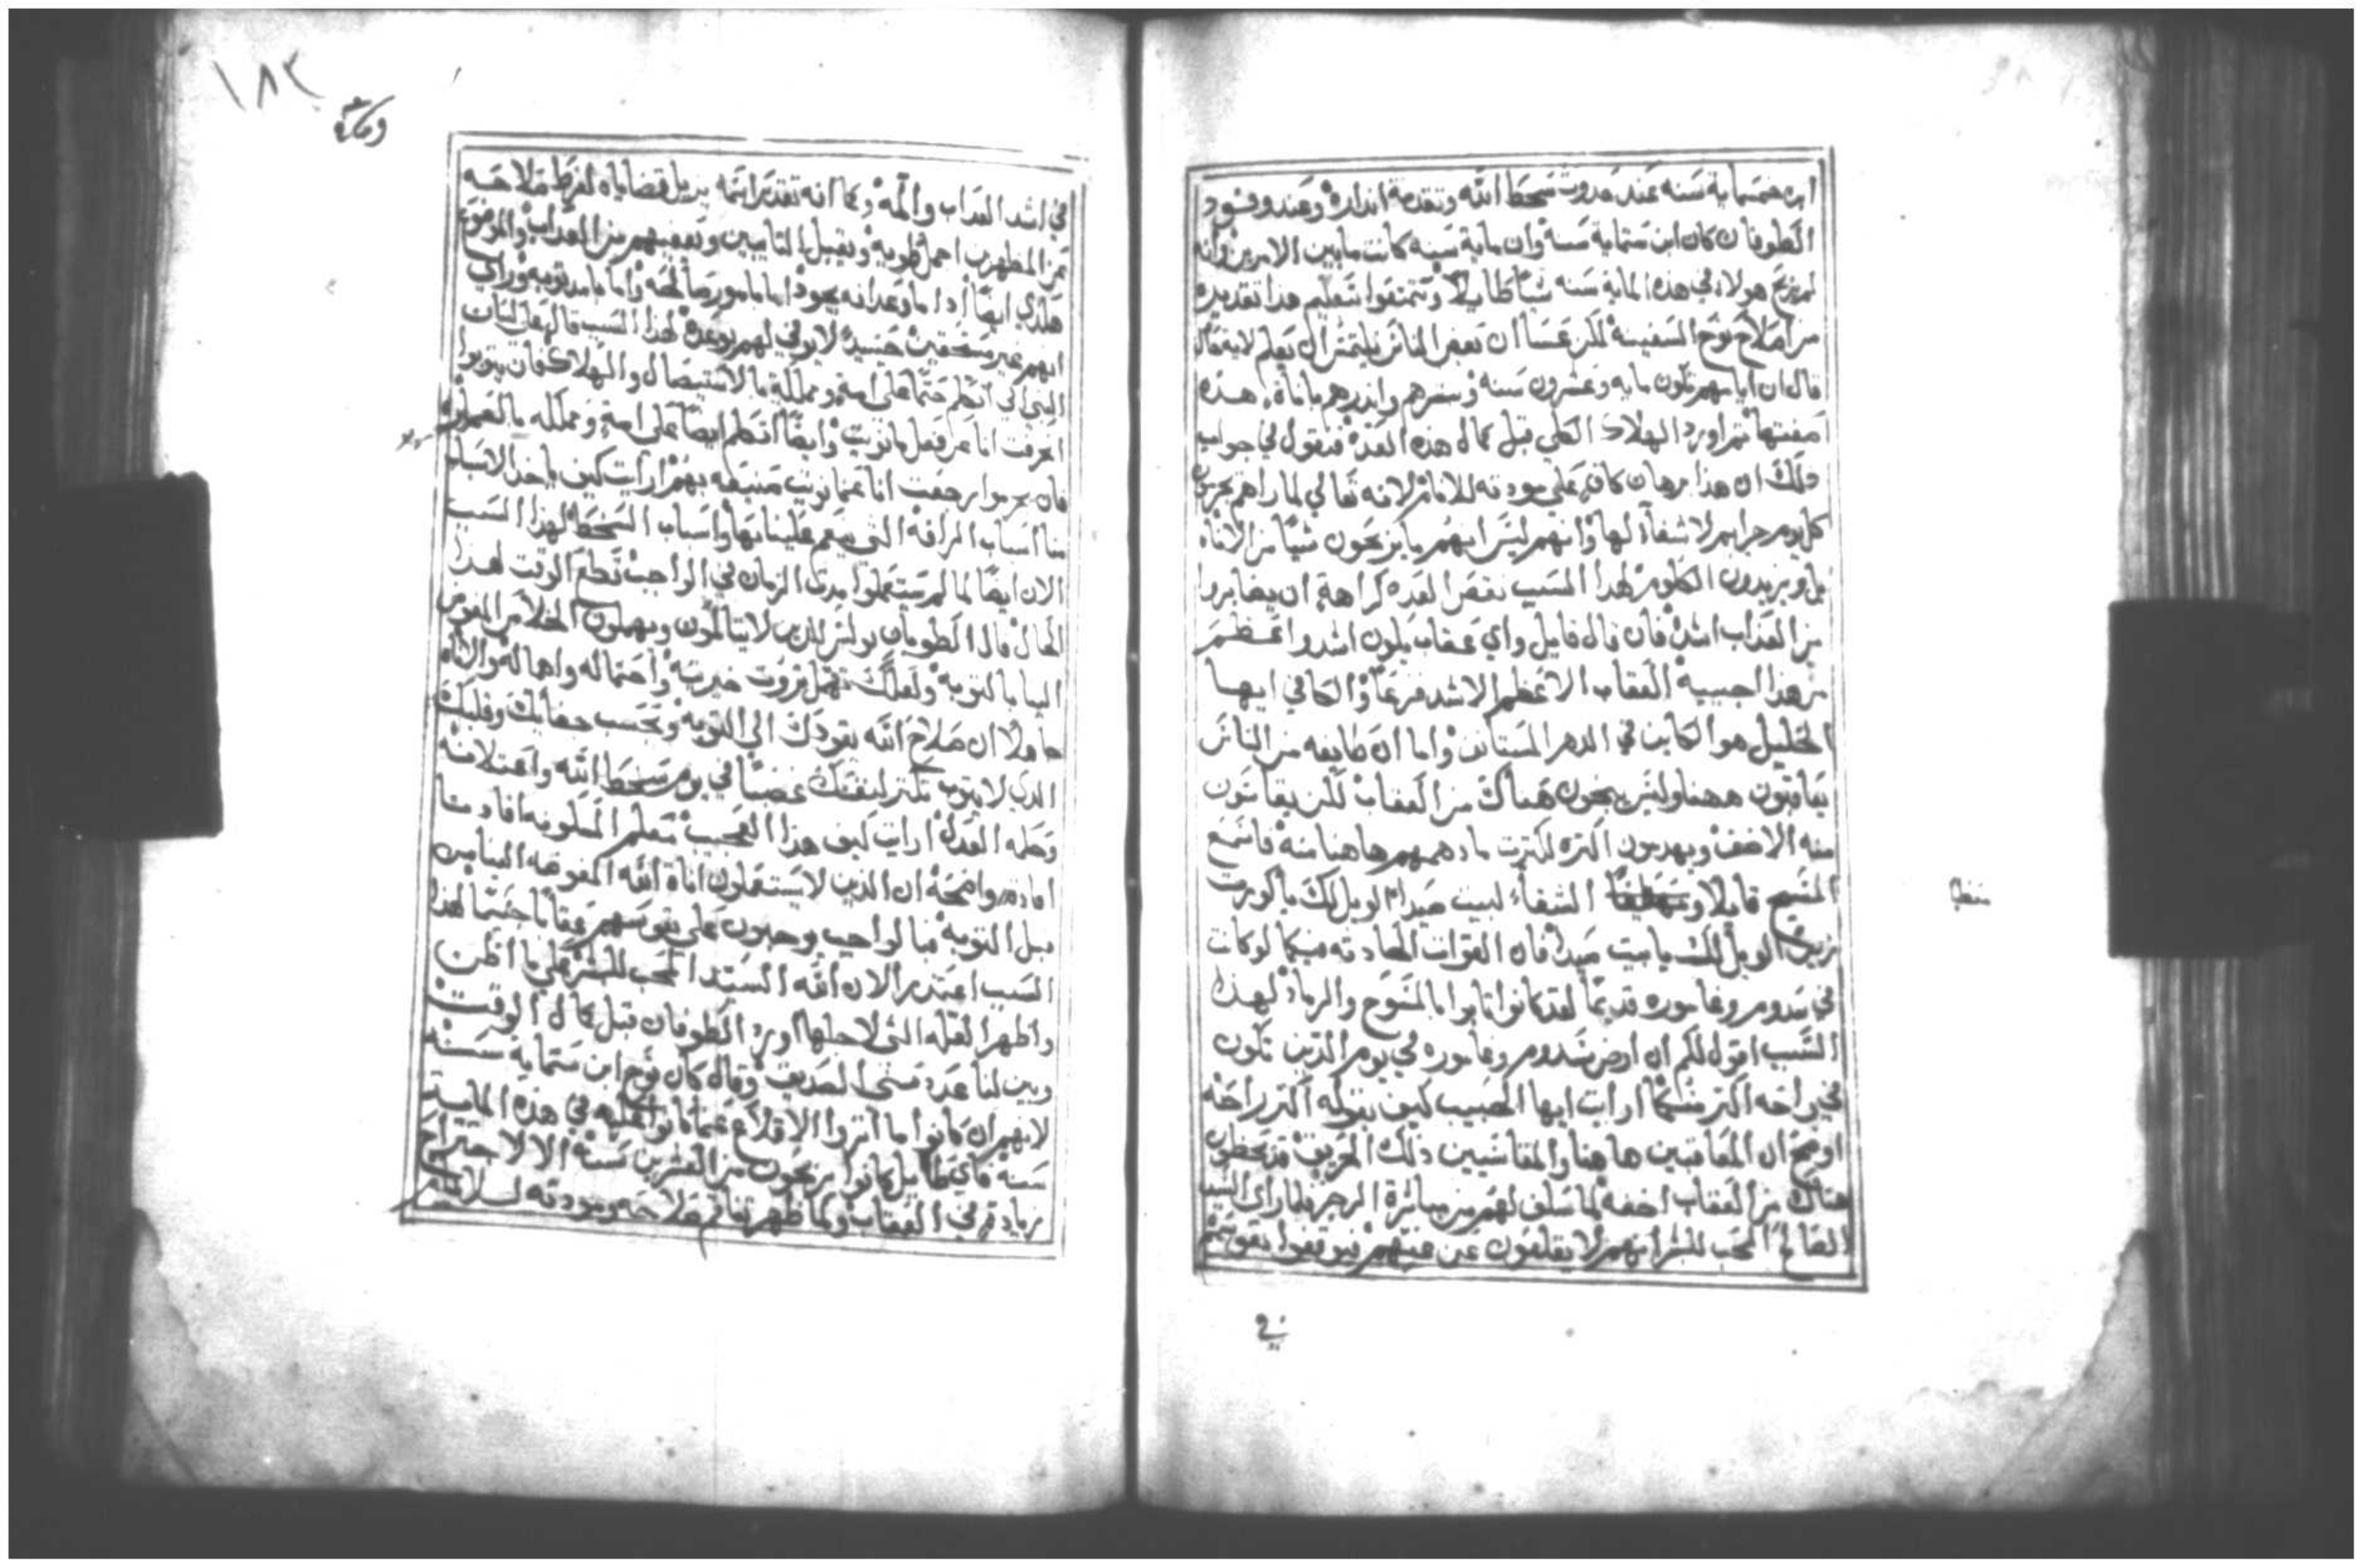 ابن خمسماية سنه عند حدوث سخط الله وتقدمة انداره وعند وفود
الطوفان كان ابن ستماية سنه وان ماية سنه كانت مابين الامرين وانه
لم يربح هولاء في هذه الماية سنه شياً طايلاً تعليم هذا تقديره
من اصلاح نوح السفينه لكن عسا ان بعض الناس يلتمس ان يعلم لايه حال
قال ان ايامهم تكون مايه وعشرون سنه واندرهم باناة هذه
صفتها ثم اورد الهلاك الكلي قبل كمال هذه العده فنقول في جواب
دلك ان هذا برهان كان على مودته للانام لانه تعالي لما راهم يجرمون
كل يوم جرايم لا شفآ لها وانهم ليس انهم ما يربحون شياً من الاناه
بل ويزيدون الكلوم لهذا السبب نقص العده كراهة ان يصايروا
من العداب اشد فان قال قايل واي عقاب يكون اشد واعظم
من هذا اجبيه العقاب الاعظم الاشد فزعاً والكافي ايها
الخليل هو الكاين في الدهر المستانف واما ان طايفه من الناس
يعاقبون ههنا وليس ينجون هناك من العقاب لكن يقاسون
منه الاخف ويهدمون اكتره لكترت مادهمهم هاهنا منه فاسمع
المسيح قايلا و الشفاء لبيت صيدا الويل لك يا كورت
زين الويل لك يابيت صيدا فان القوات الحادته فيكما لو كانت
في سدوم وغاموره قديماً لقد كانوا تابوا بالمسوح والرماد لهذا
السبب اقول لكم ان ارض سدوم وغاموره في يوم الدين تكون
في راحه اكتر منكما ارايت ايها الحبيب كيف بقوله اكتر راحه
اوضح ان المعاقبين هاهنا والمقاسين دلك الحريق قد يحظون
هناك من العقاب اخفه لما سلف لهم من مباشرة الرجز فلما راى السيد
الصالح المحب للبشر انهم لا يقلعون عن غيهم فيوقفوا نفوسهم
في
منطيا
١٨٣
في اشد العداب والمه وكما انه تقدير اسمه يزيل قضاياه لفرط صلاحه
عن المظهرين اجمل توبه ويقبل التايبين ويعفيهم من العداب والموضع
هكدى ايضاً ادا ما وعد انه يجود اما بامور صالحه واما بامد توبه وراي
انهم غير مستحقين حينيد لا يوفي لهم بوعده لهدا السبب قال على لسان
النبي اني احكم حتماً على امة ومملكة بالاستيصال والهلاك فان يتوبوا
اعرضت انا عن فعل مانويت وايضاً احكم ايضاً على امة ومملكه بالعماره
فان يجرموا رجعت انا عما نويت صنيعه بهم ارايت كيف ياخد الاسباب
منا اسباب الرافه التي ينعم علينا بها واسباب السخط لهذا السبب
الان ايضاً لما لم يستعملوا مدة الزمان في الواجب قطع الوقت لهدا
الحال قال الطوباني بولس للدين لا يتالمون ويهملون الخلاص المفوض
الينا بالتوبه ولعلك تهمل تروت خيريته واحتماله وامهاله والاناه
جاهلا ان صلاح الله يقودك الي التوبه وبحسب جفايك وقلبك
الدي لا يتوب تكتر لنفسك غضباً في يوم سخط الله واعتلان
وحكمه العدل ارايت كيف هذا العجيب معلم المسكونه افادنا
افادة واضحه ان الذين لا يستعملون اناة الله المفوضه الينا من
قبل التوبه فبالواجب يوجبون على نفوسهم عقاباً جسيماً لهذا
السبب اعتدر الان الله السيد المحب للبشر على ما اظن
واظهر العله التي لاجلها اورد الطوفان قبل كمال الوقت
وبين لنا عدد سني الصديق وقال كان نوح ابن ستماية سنه
لانهم ان كانوا ما اتروا الاقلاع عما كانوا عليه في هذه الماية
سنه فاي طايل كانوا يربحون من العشرين سنه الا الاجترام
زيادة في العقاب ولما ظهر تفاقم صلاحه ومودته